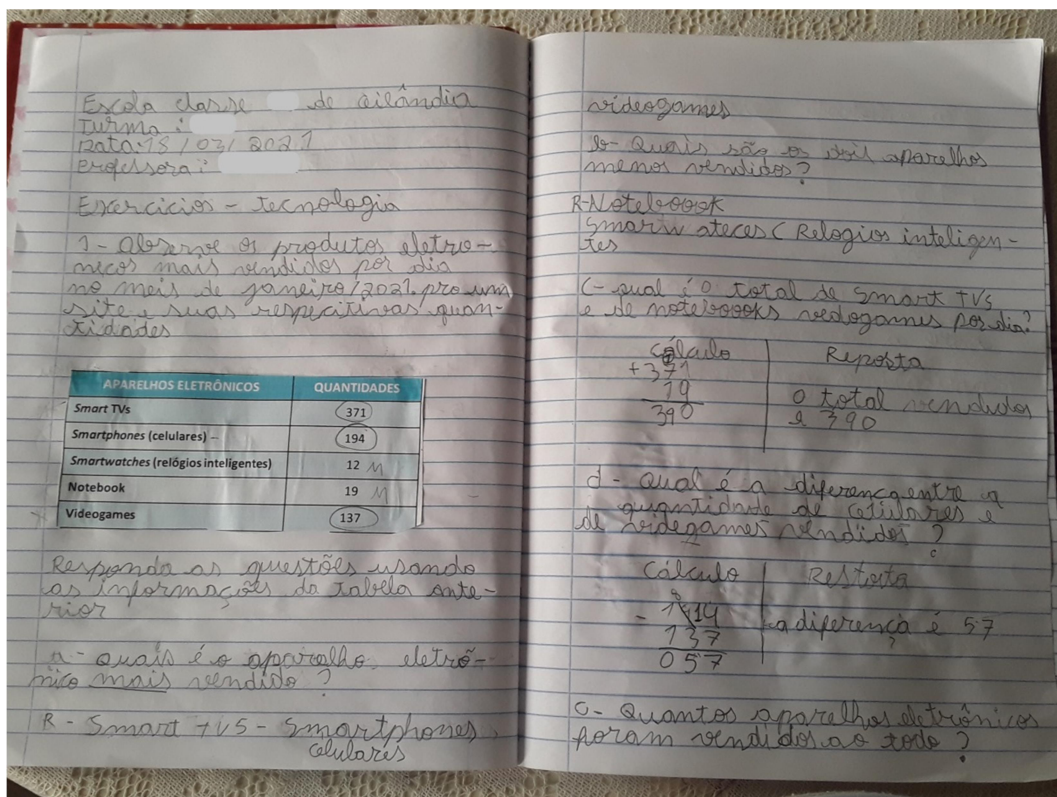 Escola classe de ceilândia
Turma :
Data: 18 / 03 / 2021
Professora :
Exercicios - tecnologia
1 - Observe os produtos eletro-
nicos mais vendidos por dia
no meis de janeiro / 2021. pro um
site e suas respecitivas quan-
tidades
APARELHOS ELETRÔNICOS QUANTIDADES
Smart TVs 371
Smartphones (celulares) - 194
Smartwatches (relógios inteligentes) 12 M
Notebook 19 M
Videogames 137
Responda as questões usando
as informações da tabela ante-
rior
a - quais é o aparalho eletrô-
nico mais vendido ?
R - Smart tvs - Smartphones,
celulares
videogames
b - Quais são os dois aparelhos
menos vendidos ?
R-Noteboook
Smarw ateces ( Relogios inteligen-
tes
C - qual é o total de smart TVs
e de noteboooks vedogames por dia?
Cálculo Reposta
+ 371
19
390
o total vendidos
é 390
d - Qual é a diferença entre a
quantidade de celulares e
de videgames vendidos ?
Cálculo
- 1 14
137
057
a diferença é 57
C - Quantos aparelhos eletrônicos
foram vendidos ao todo ?